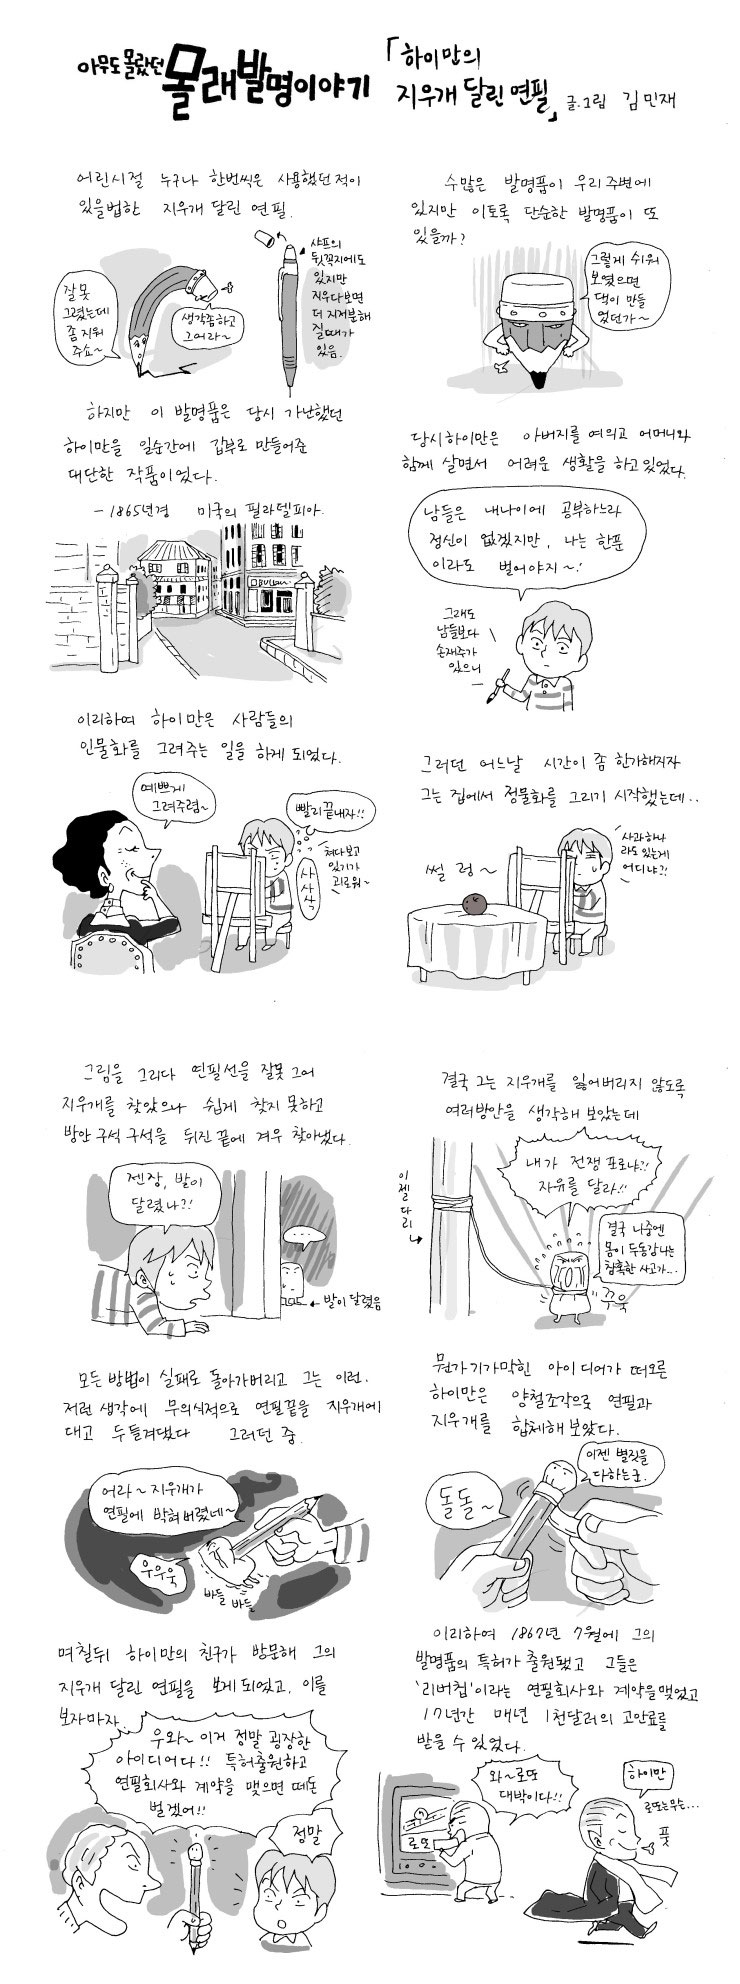 아무도 몰랐던 몰래발명이야기
「하이만의
지우개 달린 연필」
글.그림 김민재
어린시절 누구나 한번씩은 사용했던적이
있을법한 지우개 달린 연필.
잘못
그렸는데
좀 지워
주쇼~
생각좀하고
그어라~
샤프의
뒷꼭지에도
있지만
지우다보면
더 지저분해
질때가
있음.
수많은 발명품이 우리주변에
있지만 이토록 단순한 발명품이 또
있을까?
그렇게 쉬워
보였으면
댁이 만들
었던가~
하지만 이 발명품은 당시 가난했던
하이만을 일순간에 갑부로 만들어준
대단한 작품이었다.
- 1865년경 미국의 필라델피아.
당시하이만은 아버지를 여의고 어머니와
함께 살면서 어려운 생활을 하고있었다.
남들은 내나이에 공부하느라
정신이 없겠지만, 나는 한푼
이라도 벌어야지~!
그래도
남들보다
손재주가
있으니
이리하여 하이만은 사람들의
인물화를 그려주는 일을 하게 되었다.
예쁘게
그려주렴~
빨리끝내자!!
쳐다보고
있기가
괴로워~
사
사
삭
그러던 어느날 시간이 좀 한가해지자
그는 집에서 정물화를 그리기 시작했는데..
썰렁~
사과하나
라도 있는게
어디냐?!
그림을 그리다 연필선을 잘못 그어
지우개를 찾았으나 쉽게 찾지 못하고
방안 구석구석을 뒤진끝에 겨우 찾아냈다.
젠장, 발이
달렸나?!
...
발이달렸음
결국 그는 지우개를 잃어버리지 않도록
여러방안을 생각해 보았는데
이젤다리
내가 전쟁 포로냐?!
자유를 달라!!
결국 나중엔
몸이 두동강나는
참혹한 사고가...
꾸욱
모든 방법이 실패로 돌아가버리고 그는 이런.
저런 생각에 무의식적으로 연필끝을 지우개에
대고 두들겨댔다 그러던 중.
어라~지우개가
연필에 박혀버렸네~
우우욱
바들 바들
뭔가기가막힌 아이디어가 떠오른
하이만은 양철조각으로 연필과
지우개를 합체해보았다.
돌돌~
이젠 별짓을
다하는군.
며칠뒤 하이만의 친구가 방문해 그의
지우개 달린 연필을 보게되었고, 이를
보자마자.
우와~ 이거 정말 굉장한
아이디어다!! 특허출원하고
연필회사와 계약을 맺으면 떼돈
벌겠어!!
정말
이리하여 1867년 7월에 그의
발명품의 특허가 출원됐고 그들은
'리버칩'이라는 연필회사와 계약을맺었고
17년간 매년 1천달러의 고안료를
받을 수 있었다.
와~로또
대박이다!!
로또
하이만
로또는무슨...
풋